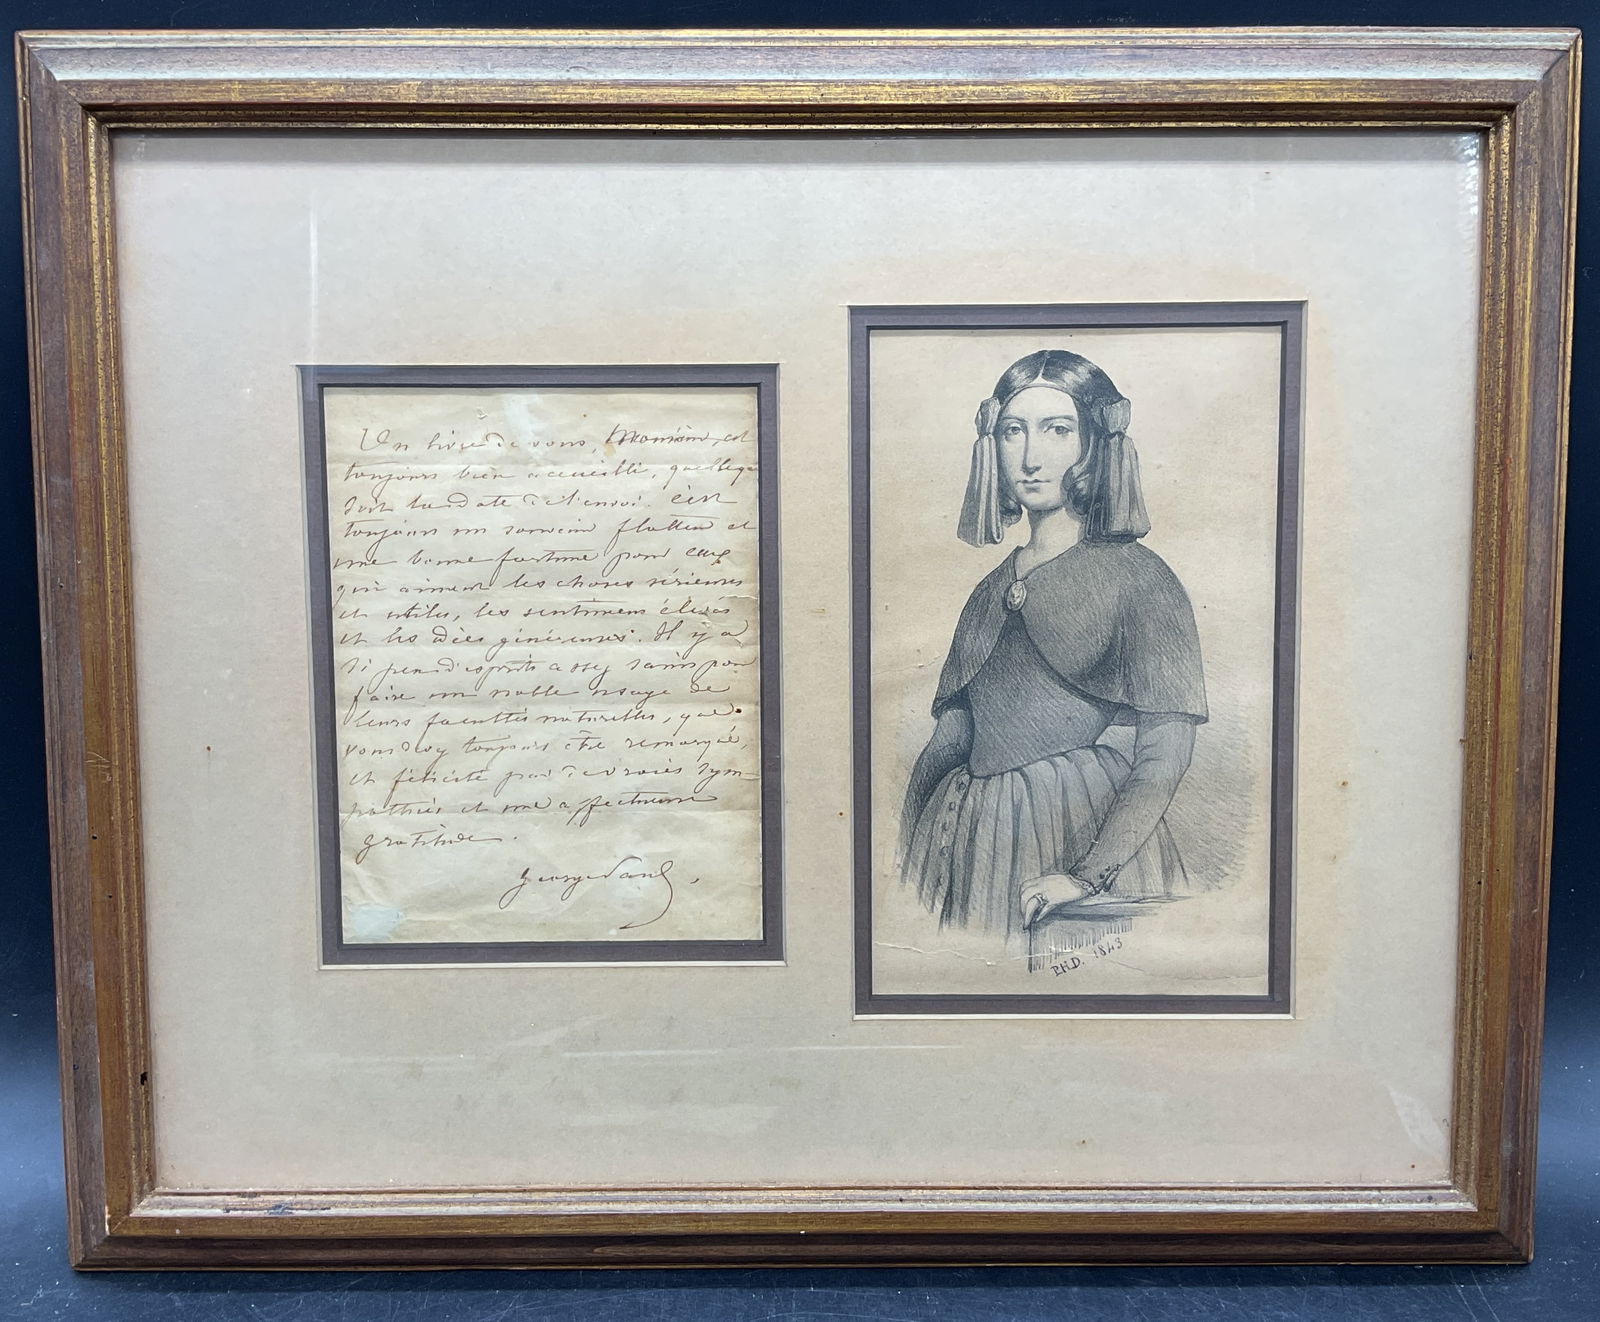 Un livre de vous, Monsieur, est
toujours bien accueilli, quelle que
soit la date de l'envoi. C'est
toujours un souvenir flatteur et
une bonne fortune pour ceux
qui aiment les choses sérieuses
et utiles, les sentimens élevés
et les idées généreuses. Il y a
si peu d'esprits assez sains pour
faire un noble usage de
leurs facultés naturelles, que
vous devez toujours être remarqué,
et félicité par de vraies sym-
pathies et une affectueuse
gratitude.
George Sand
P.H.D. 1843